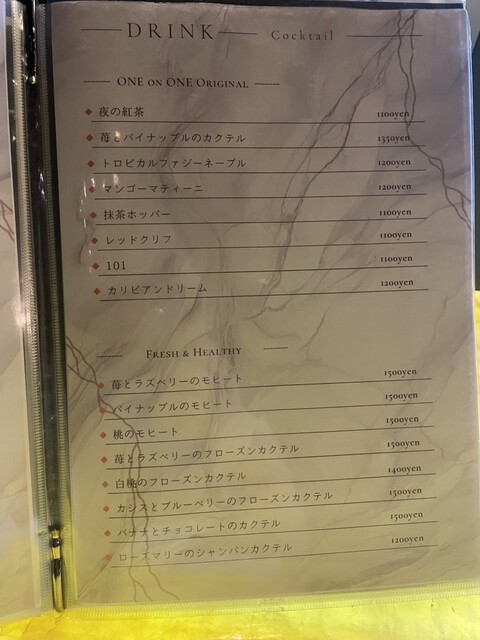 DRINK Cocktail
ONE ON ONE ORIGINAL
夜の紅茶 1100yen
苺とパイナップルのカクテル 1350yen
トロピカルファジーネーブル 1200yen
マンゴーマティーニ 1200yen
抹茶ホッパー 1100yen
レッドクリフ 1100yen
101 1100yen
カリビアンドリーム 1200yen
FRESH & HEALTHY
苺とラズベリーのモヒート 1500yen
パイナップルのモヒート 1500yen
桃のモヒート 1500yen
苺とラズベリーのフローズンカクテル 1500yen
白桃のフローズンカクテル 1400yen
カシスとブルーベリーのフローズンカクテル 1500yen
バナナとチョコレートのカクテル 1500yen
ローズマリーのシャンパンカクテル 1200yen